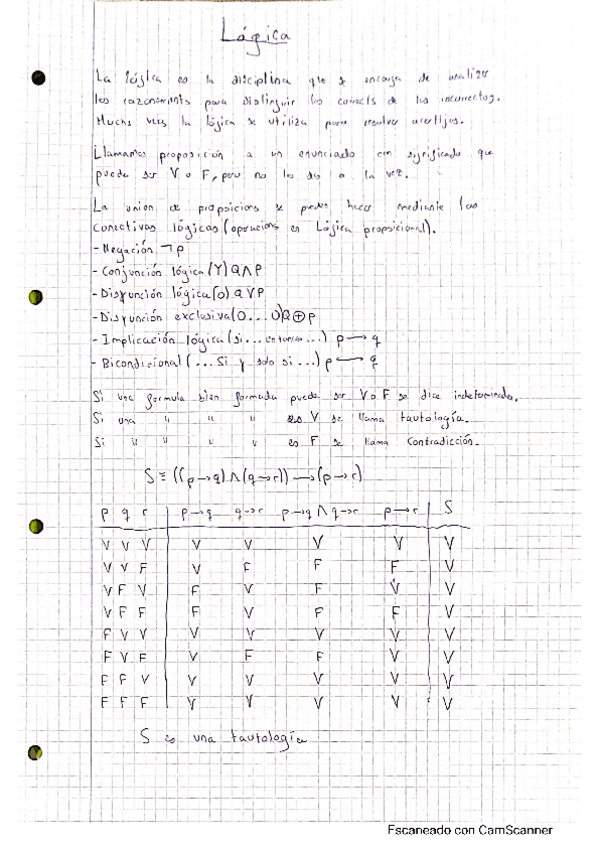 Lógica
La lógica es la disciplina que se encarga de analizar
los razonamients para distinguir los correcto de los incorrectos.
Muchs vecs la lógica se utiliza para resolver acertijos.
Llamamos proposición a un enunciado con significado que
puede ser V o F, pero no los dos a la vez.
La union de propsicions se puede hacer mediante las
conectivas lógicas (operacions en Lógica proposicional).
- Negación ¬p
- Conjunción lógica (Y) Q∧P
- Disyunción lógica (O) Q∨P
- Disyunción exclusiva (O... O) Q⊕p
- Implicación lógica (si... entonces...) p→q
- Bicondicional (... Si y solo si ...) p↔q
Si una formula bien formada puede ser V o F se dice indeterminada.
Si una " " " es V se llama tautología.
Si " " " " es F se llama Contradicción.
S ≡ ((p→q)∧(q→r))→(p→r)
p q r p→q q→r p→q∧q→r p→r S
V V V V V V V V
V V F V F F F V
V F V F V F V V
V F F F V F F V
F V V V V V V V
F V F V F F V V
F F V V V V V V
F F F V V V V V
S es una tautología
Escaneado con CamScanner